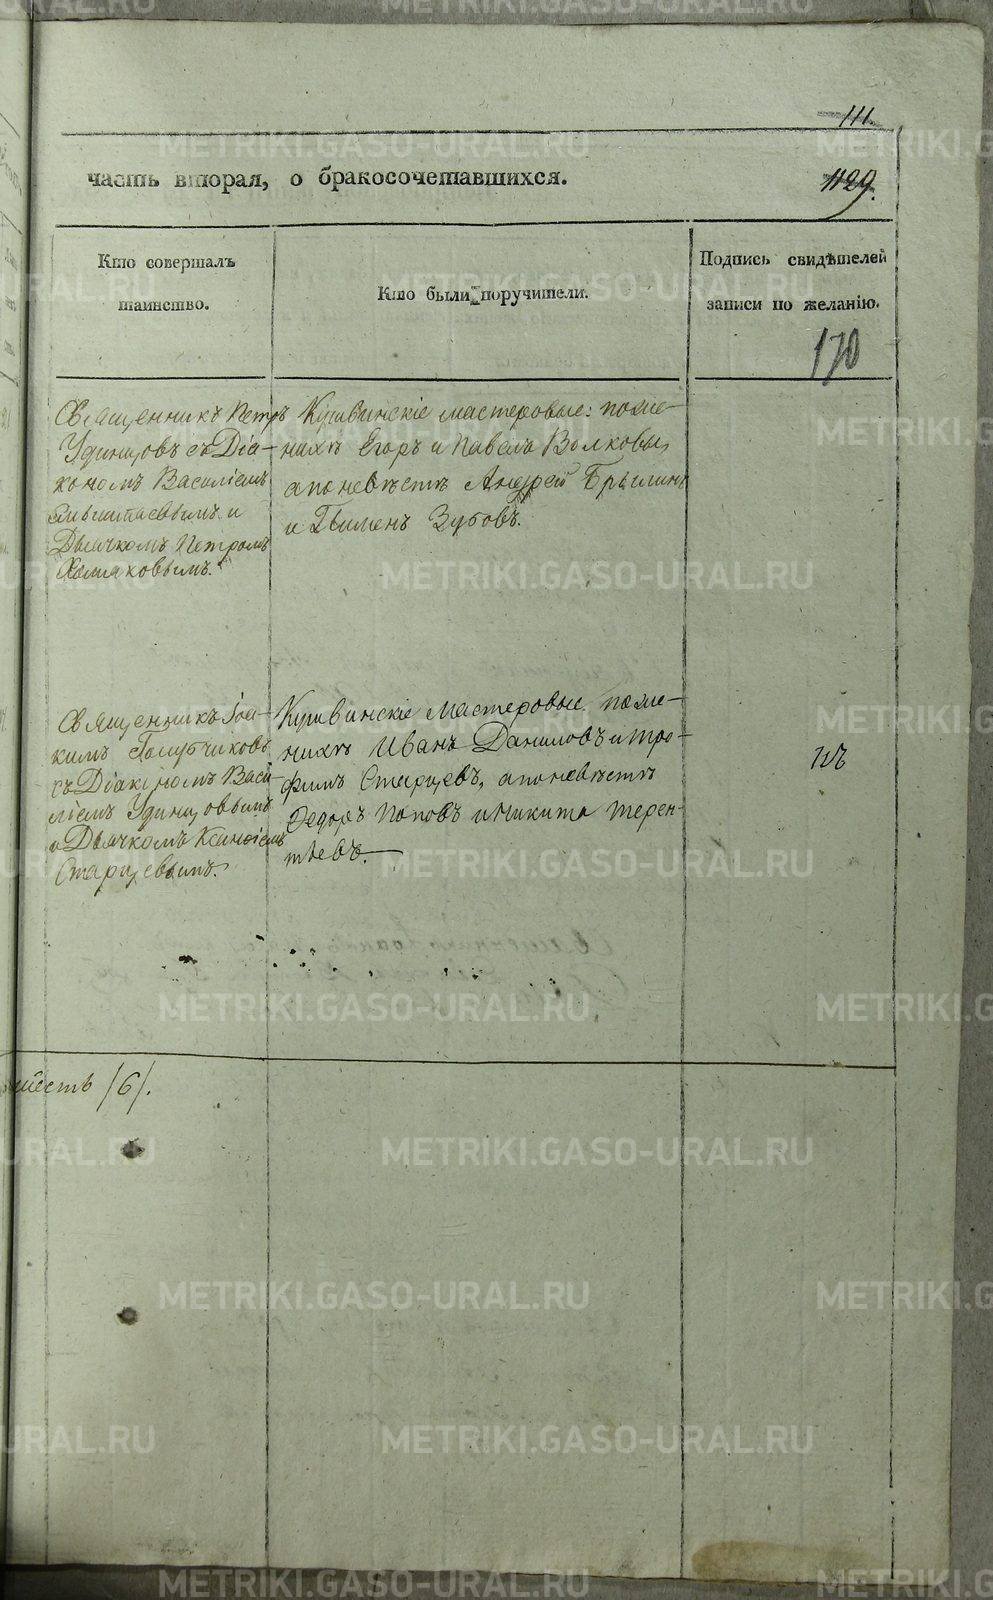 111.
часть вторая, о бракосочетавшихся.
1129.
Кто совершалъ
таинство.
Кто были поручители.
Подпись свидѣтелей
записи по желанію.
170
Священникъ Петръ
Удинцовъ съ Діа-
кономъ Василіемъ
и
Дьячкомъ Петромъ
Хомяковымъ.
Кушвинскіе мастеровые: по же-
нихѣ Егоръ и Павелъ Волковы,
а по невѣстѣ Андрей Брылинъ
и Пименъ Зубовъ.
Священникъ Іоа-
кимъ Голубчиковъ
съ Діакономъ Васи-
ліемъ Удинцовымъ
и Дьячкомъ
Старцевымъ.
Кушвинскіе мастеровые по же-
нихѣ Иванъ Даниловъ и Тро-
фимъ Старцевъ, а по невѣстѣ
Федоръ Поповъ и Никита Терен-
тьевъ.
шесть /6/.
METRIKI.GASO-URAL.RU